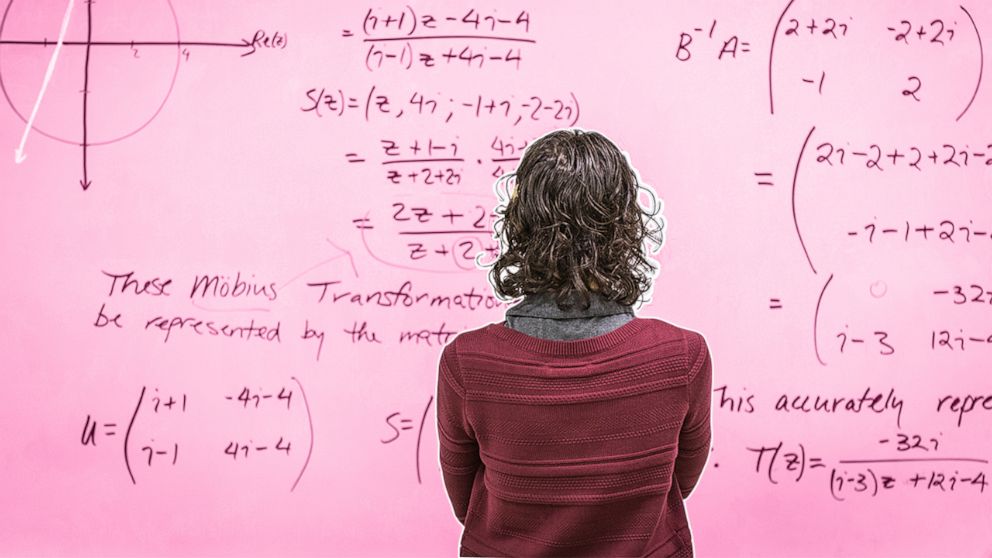 Re(z)
2
4
= (i+1)z-4i-4 / (i-1)z+4i-4
S(z)=(z, 4i; -1+i, -2-2i)
= z+1-i / z+2+2i · 4i-
= 2z+2 / z+2+
These Möbius Transformation
be represented by the
U= ( i+1 -4i-4
i-1 4i-4 )
S= (
B⁻¹A= ( 2+2i -2+2i
-1 2 )
= ( 2i-2+2+2i-2
-i-1+2i-
= ( 0 -32i
i-3 12i-4
This accurately
T(z)= -32i / (i-3)z+12i-4